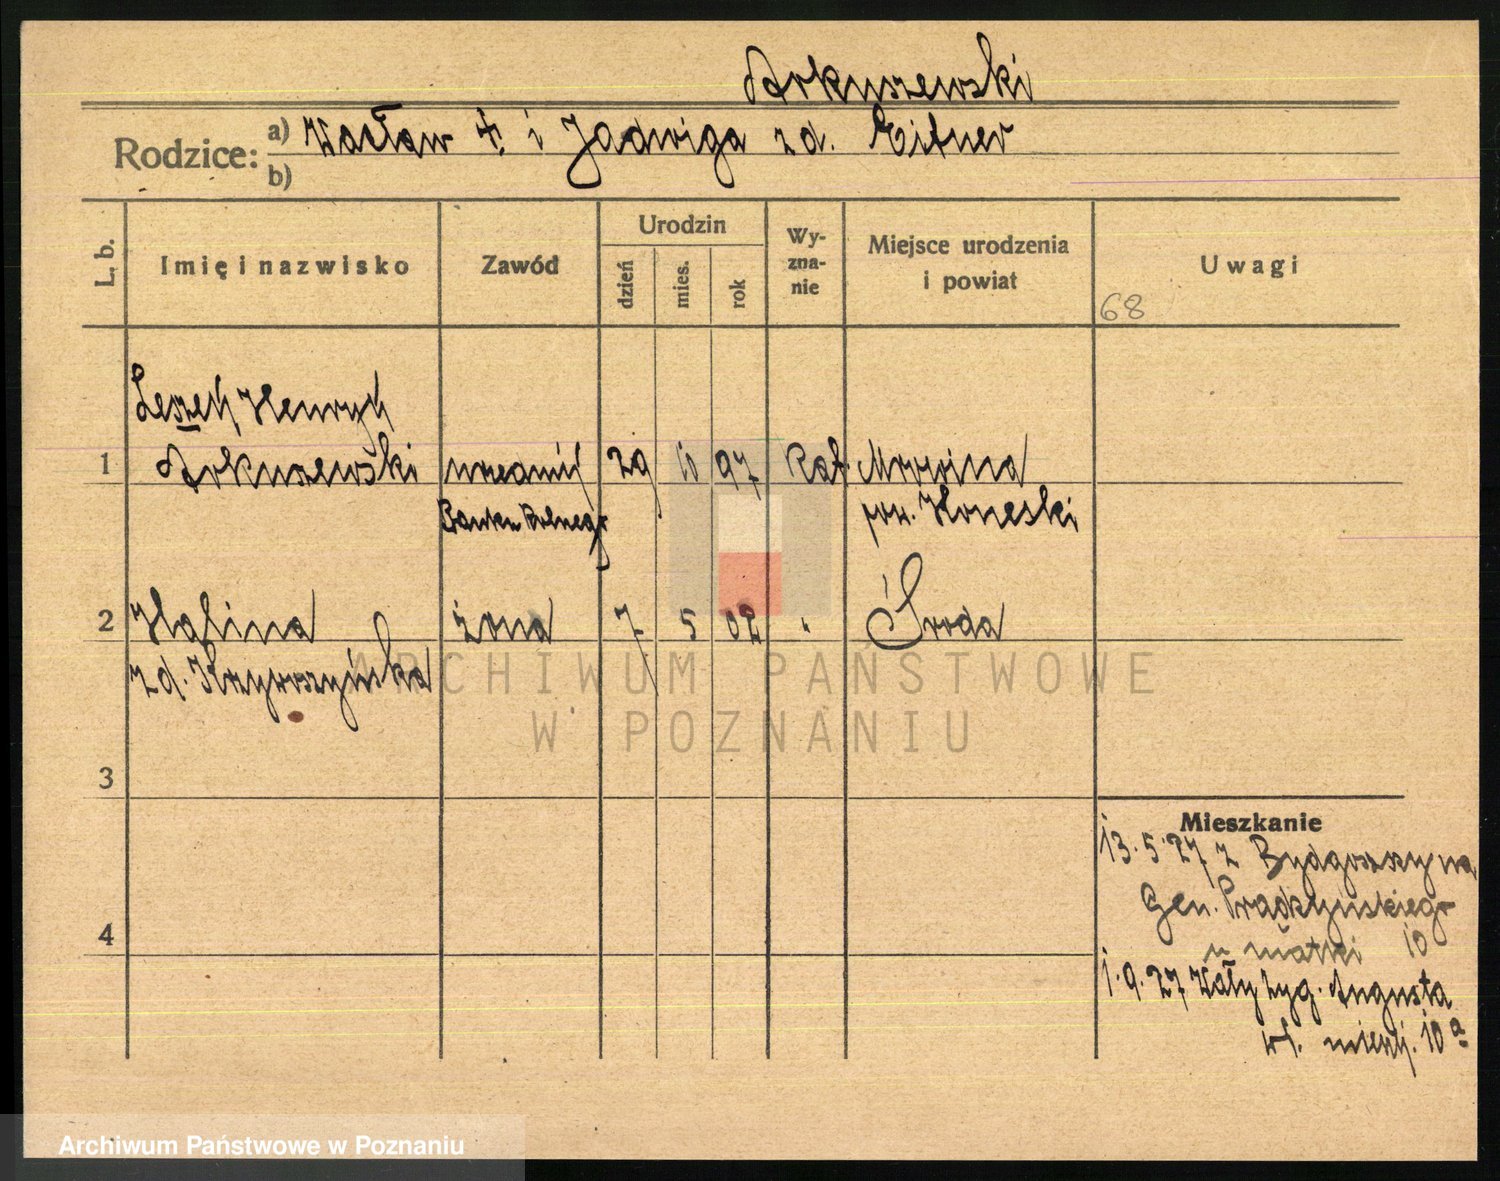 Arkuszewski
Rodzice:
a) Wacław †. i Jadwiga zd. Eitner
b)
L. b.
Imię i nazwisko
Zawód
Urodzin
dzień
mies.
rok
Wy-
zna-
nie
Miejsce urodzenia
i powiat
Uwagi
68
Leszek Henryk
1 Arkuszewski urzędnik 29 10 97 Kat.
pow. Koneski
Banku Rolnego
2 Halina żona 7 5 02 " Środa
zd.
3
4
Mieszkanie
13.5.27 z Bydgoszczy na
Gen. Prądzyńskiego
u matki 10
1.9.27 Wały Zyg. Augusta
wł. mieszk. 10a
ARCHIWUM PAŃSTWOWE
W POZNANIU
Archiwum Państwowe w Poznaniu